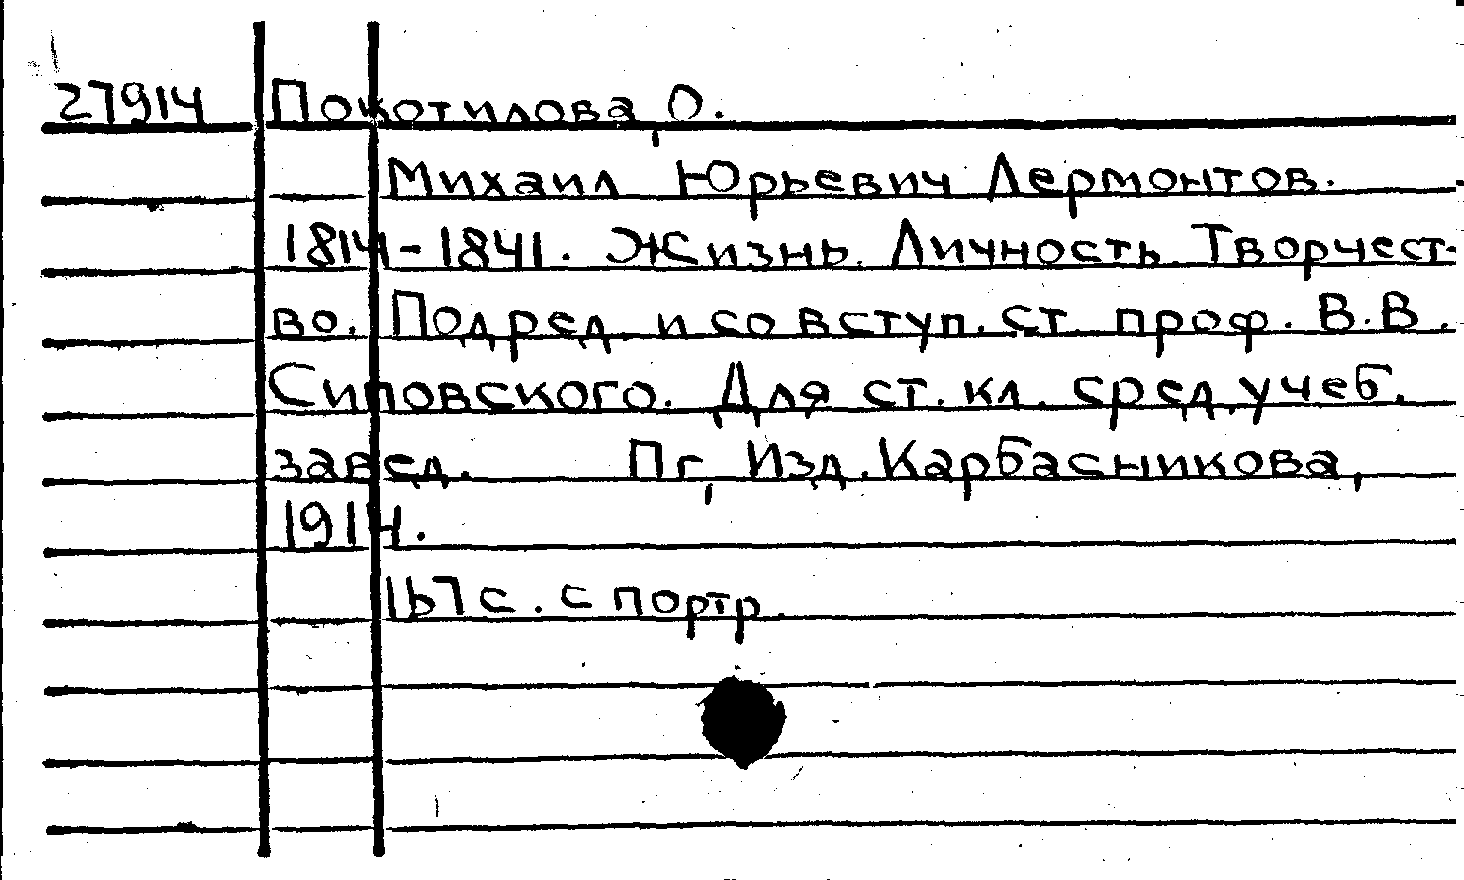 27914 Покотилова, О.
Михаил Юрьевич Лермонтов.
1814-1841. Жизнь. Личность. Творчест-
во. Под ред. и со вступ. ст. проф. В.В.
Сиповского. Для ст. кл. сред. учеб.
завед. Пг, Изд. Карбасникова,
1914.
167 с. с портр.